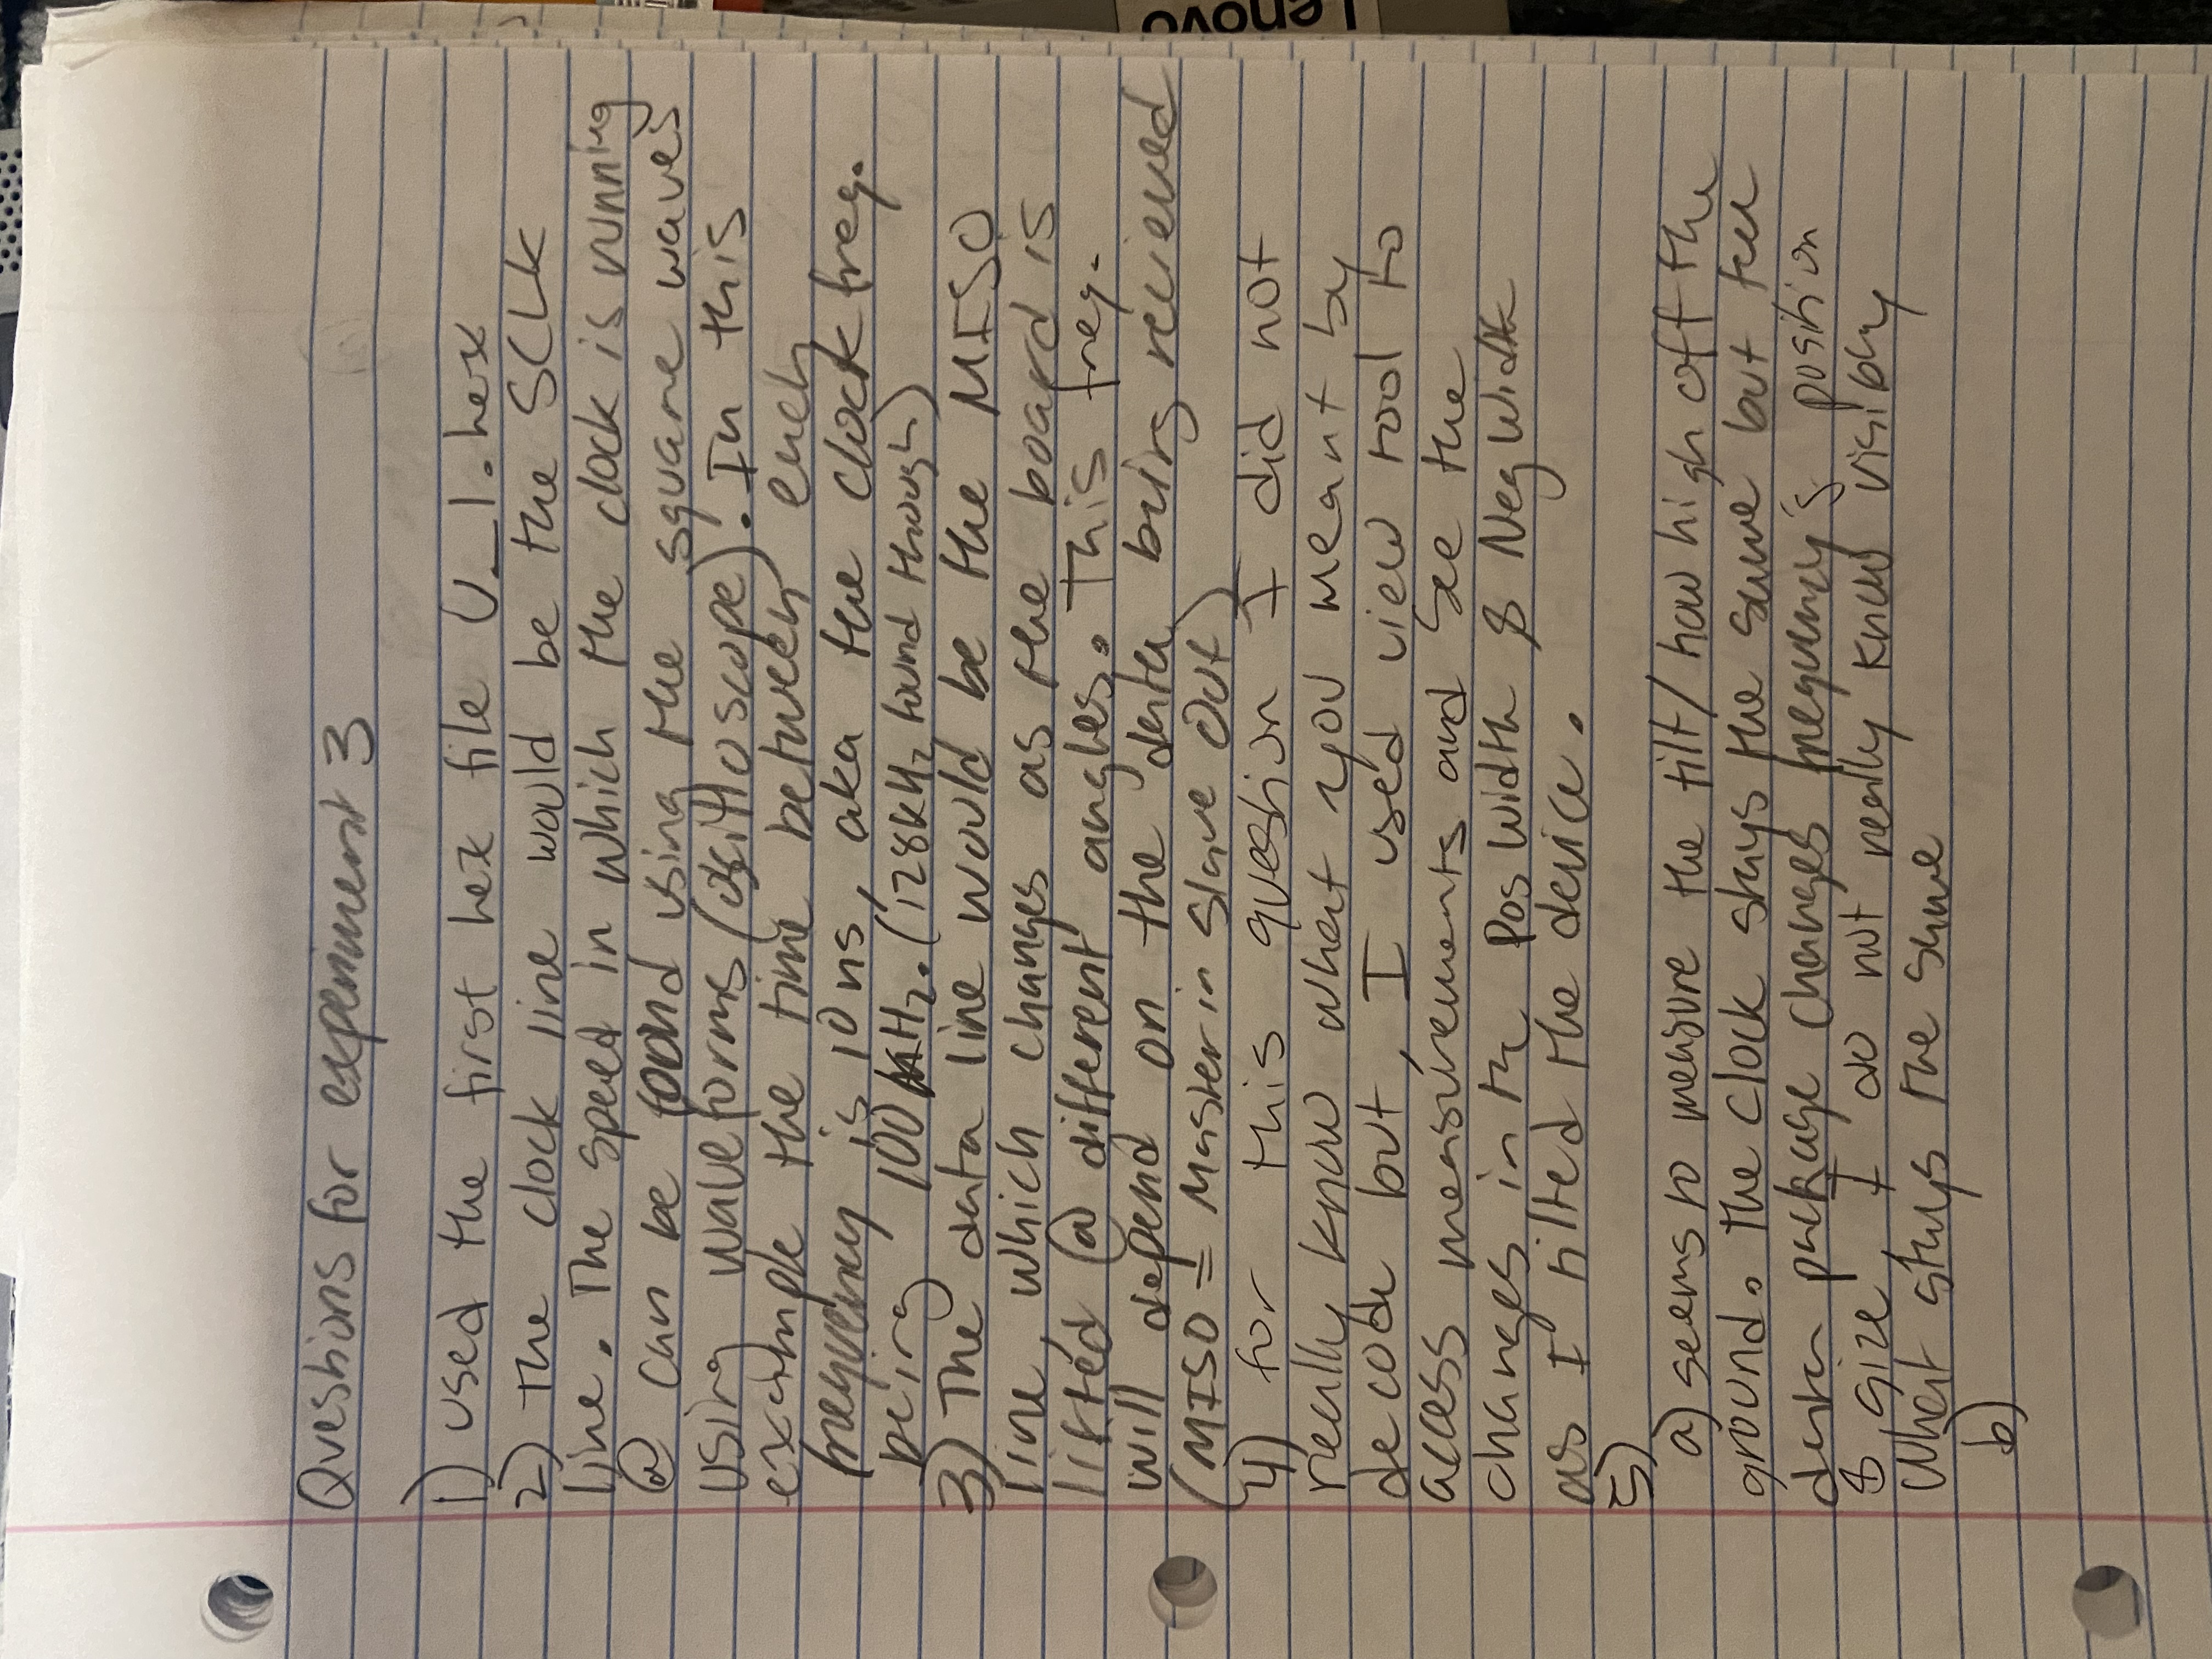 Questions for experiment 3
1) used the first hex file U_1.hex
2) The clock line would be the SCLK
line. The speed in which the clock is running
@ can be found using the square waves
using waveforms (oscilloscope). In this
example the time between each
frequency is 10 ns, aka the clock freq.
being 100 kHz. (128kHz found though)
3) The data line would be the MISO
line, which changes as the board is
lifted @ different angles. This freq.
will depend on the data being recieved
(MISO = Master in Slave Out)
4) for this question I did not
really know what you meant by
decode but, I used view tool to
access measurements and see the
changes in the Pos Width & Neg Width
as I tilted the device.
5)
a) seems to measure the tilt/how high off the
ground. The clock stays the same but the
data package changes frequency's position
& size, I do not really know visibly
what stays the same
b)
Lenovo